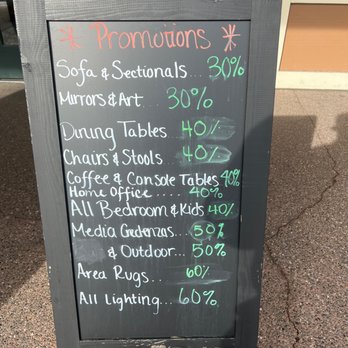 * Promotions *
Sofa & Sectionals... 30%
Mirrors & Art.... 30%
Dining Tables 40%
Chairs & Stools 40%
Coffee & Console Tables 40%
Home Office.... 40%
All Bedroom & Kids 40%
Media Credenzas... 50%
& Outdoor... 50%
Area Rugs.. 60%
All Lighting... 60%